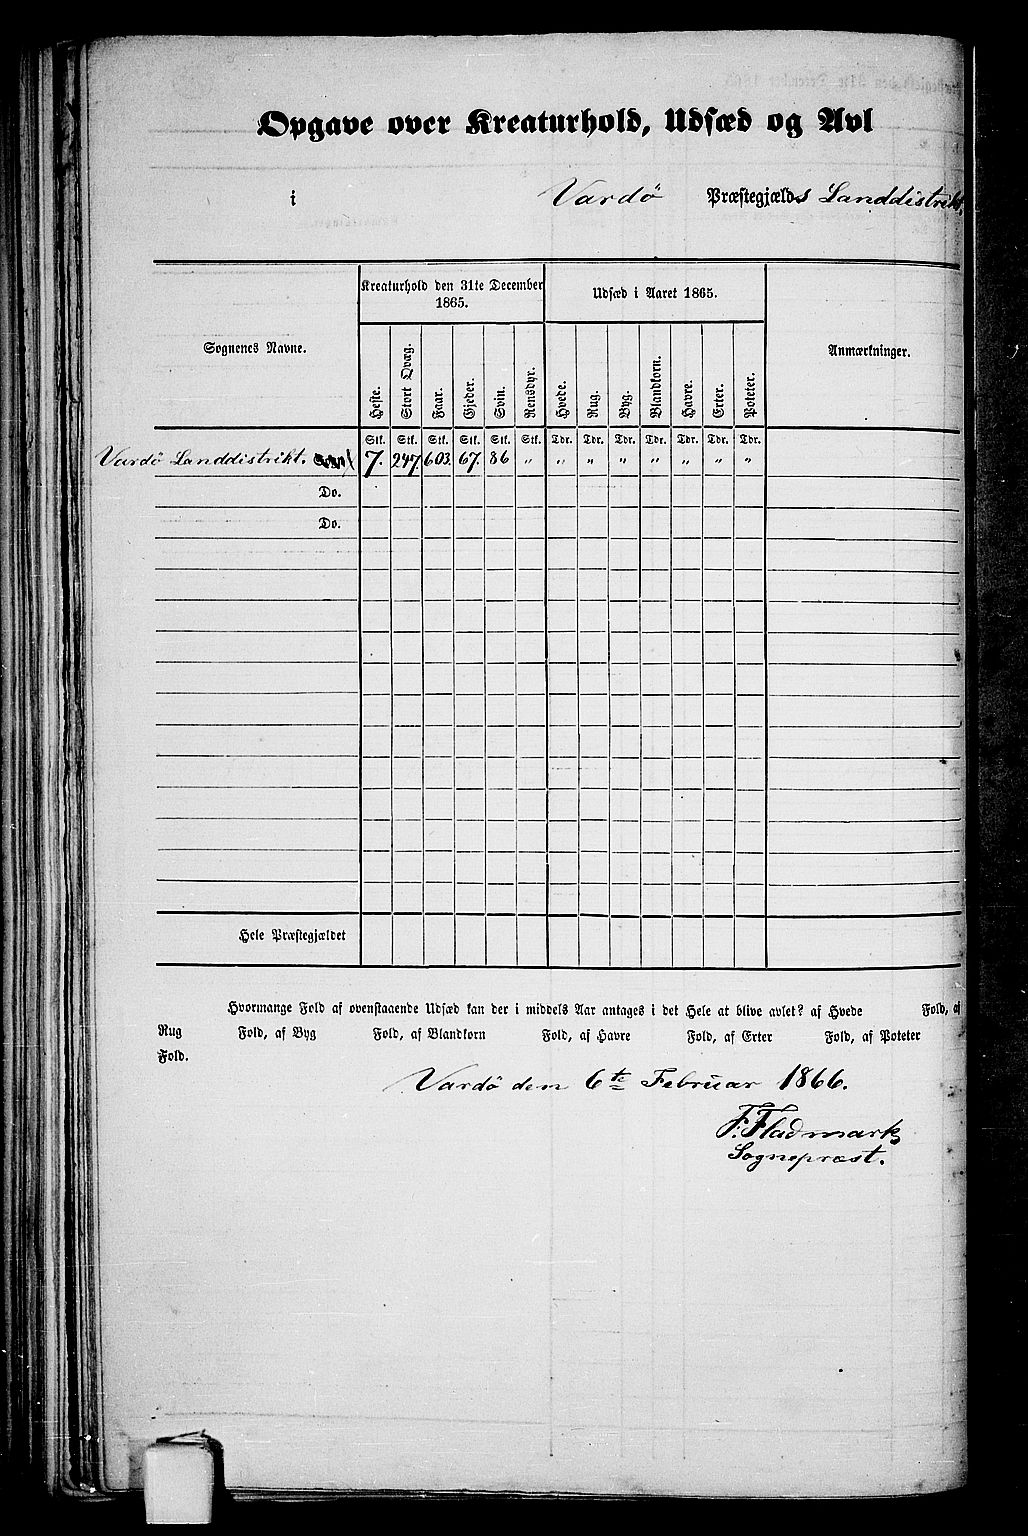 Opgave over Kreaturhold, Udsæd og Avl
i Vardö Præstegjælds Landdistrikt.
Sognenes Navne.
Kreaturhold den 31te December 1865.
Udsæd i Aaret 1865.
Anmærkninger.
Heste. Stort Qvæg. Faar. Gjeder. Svin. Rensdyr. Hvede. Rug. Byg. Blandkorn. Havre. Erter. Poteter.
Stk. Stk. Stk. Stk. Stk. Stk. Tdr. Tdr. Tdr. Tdr. Tdr. Tdr. Tdr.
Vardö Landdistrikt. 7. 247. 603. 67. 86 " " " " " " " "
Do.
Do.
Hele Præstegjældet
Hvormange Fold af ovenstaaende Udsæd kan der i middels Aar antages i det Hele at blive avlet? af Hvede Fold, af
Rug Fold, af Byg Fold, af Blandkorn Fold, af Havre Fold, af Erter Fold, af Poteter
Fold.
Vardö den 6te Februar 1866.
F. Fladmark
Sognepræst.